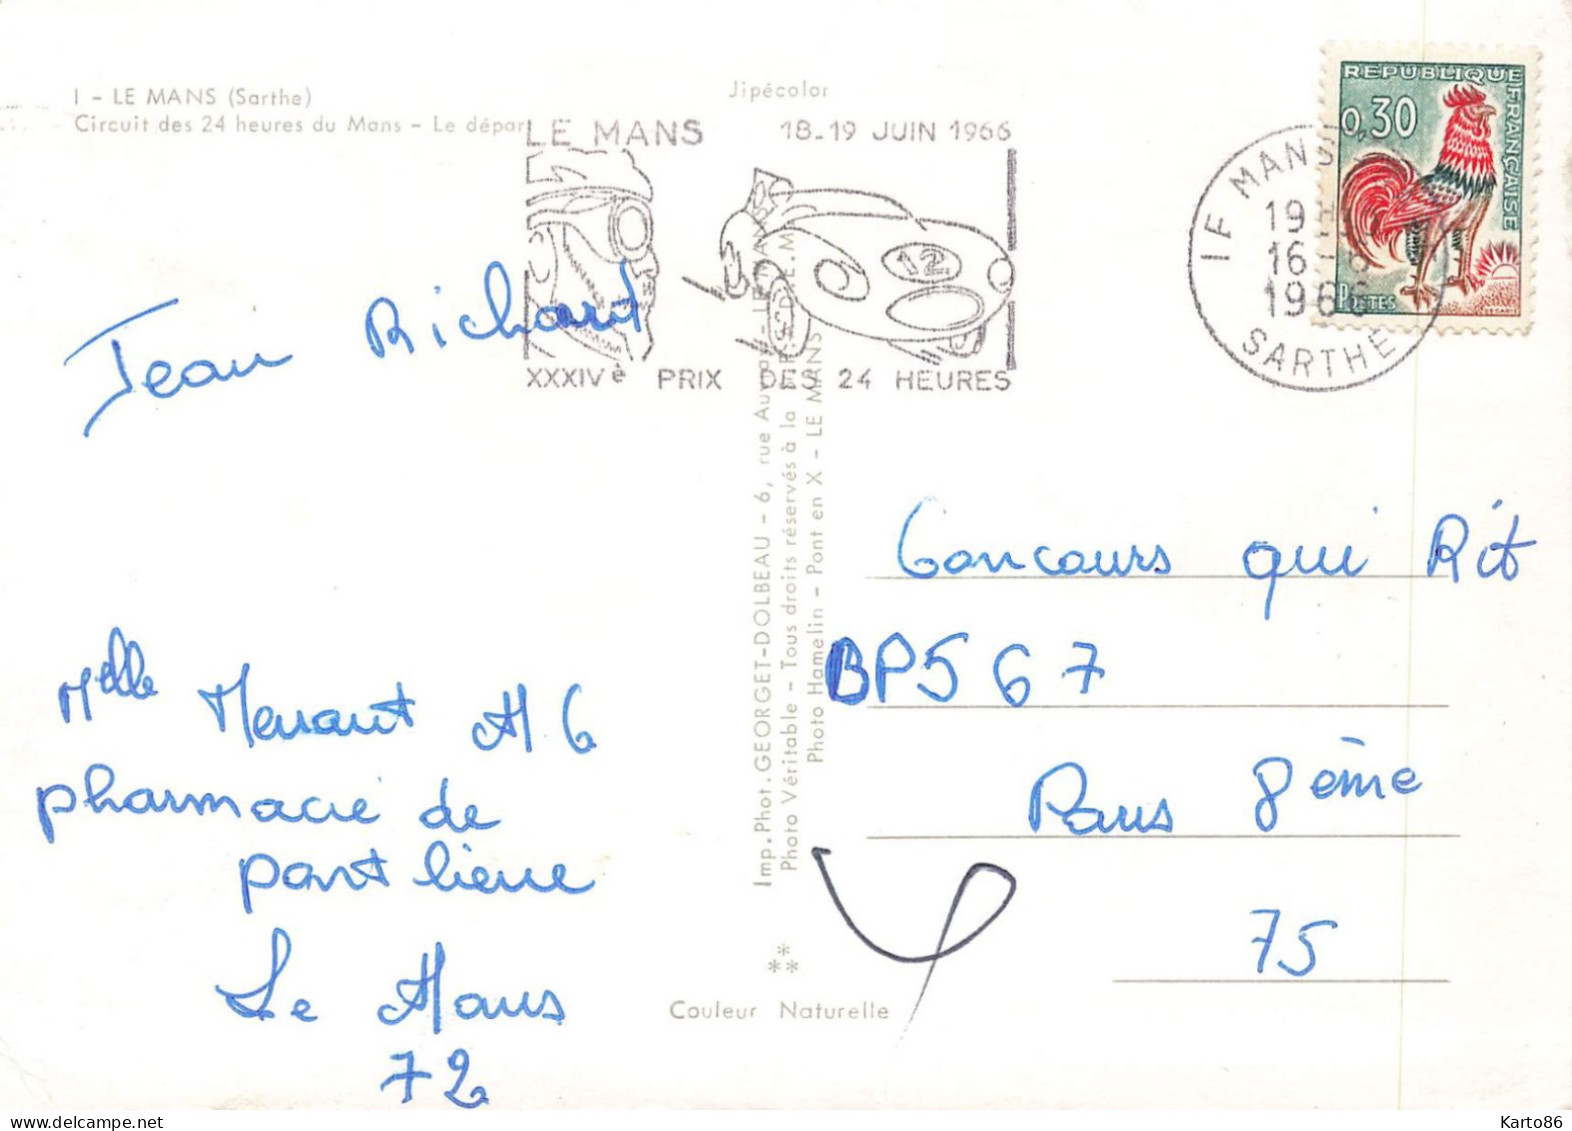 1 - LE MANS (Sarthe)
Circuit des 24 heures du Mans - Le dépar
Jipécolor
LE MANS 18-19 JUIN 1966
12
XXXIVè PRIX DES 24 HEURES
REPUBLIQUE FRANÇAISE
0,30
POSTES
DECARIS
LE MANS
19 H
16 - 6
1966
SARTHE
Jean Richard
Concours qui Rit
BP567
Paris 8ème
75
Melle
pharmacie de
pontlieue
Le Mans
72
Imp. Phot. GEORGET-DOLBEAU - 6, rue
Photo Véritable - Tous droits réservés à la
Photo Hamelin - Pont en X - LE MANS
Couleur Naturelle
Karto86